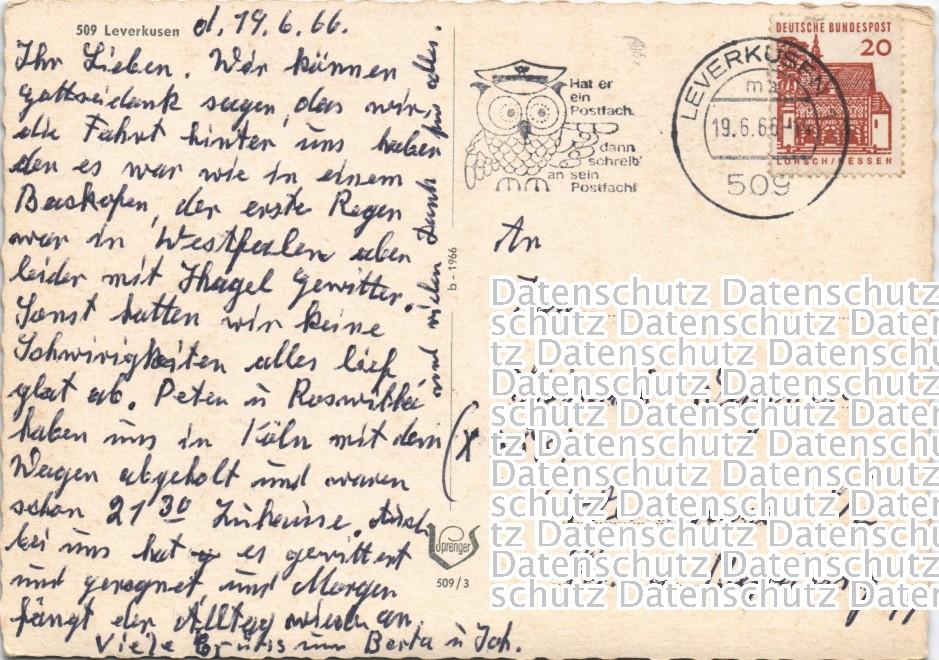 509 Leverkusen d. 19.6.66.
Ihr Lieben. Wir können
gottseidank sagen, das wir
die Fahrt hinter uns haben
den es war wie in einem
Backofen, der erste Regen
war in Westfalen aber
leider mit Hagel gewitter.
Sonst hatten wir keine
Schwirigkeiten alles lief
glat ab. Peter u Roswitha
haben uns in Köln mit dem
Wagen abgeholt und waren
schon 21 30 Zuhause. Auch
bei uns hat es gewittert
und geregnet, und Morgen
fängt der Alltag wieder an.
Viele Grüße von Berta u Joh.
und vielen Dank für alles.
b - 1966
Sprenger
509/3
Hat er
ein
Postfach,
dann
schreib'
an sein
Postfach!
LEVERKUSEN 1
19.6.66
509
DEUTSCHE BUNDESPOST
20
LORSCH/HESSEN
An
(X
Datenschutz Datenschutz
schutz Datenschutz Daten
tz Datenschutz Datenschutz
Datenschutz Datenschutz
schutz Datenschutz Daten
tz Datenschutz Datenschutz
Datenschutz Datenschutz
schutz Datenschutz Daten
tz Datenschutz Datenschutz
Datenschutz Datenschutz
schutz Datenschutz Daten